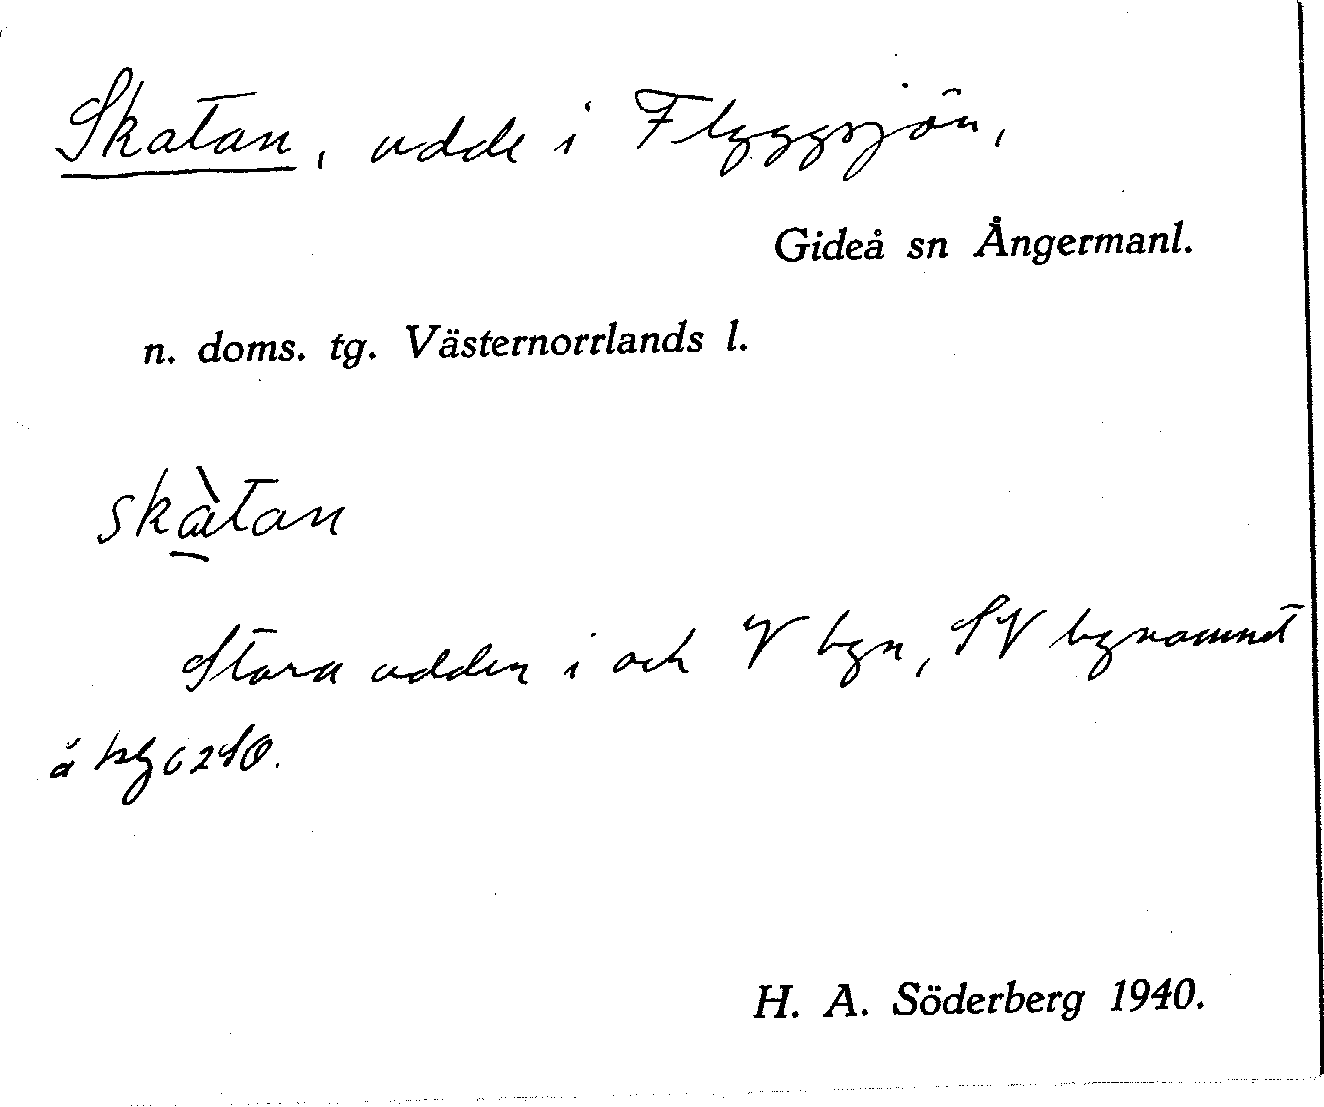 Skatan, udde i Flyggsjön,
Gideå sn Ångermanl.
n. doms. tg. Västernorrlands l.
skàtan
Stora udden i och V byn, SV bynamnet
å
H. A. Söderberg 1940.